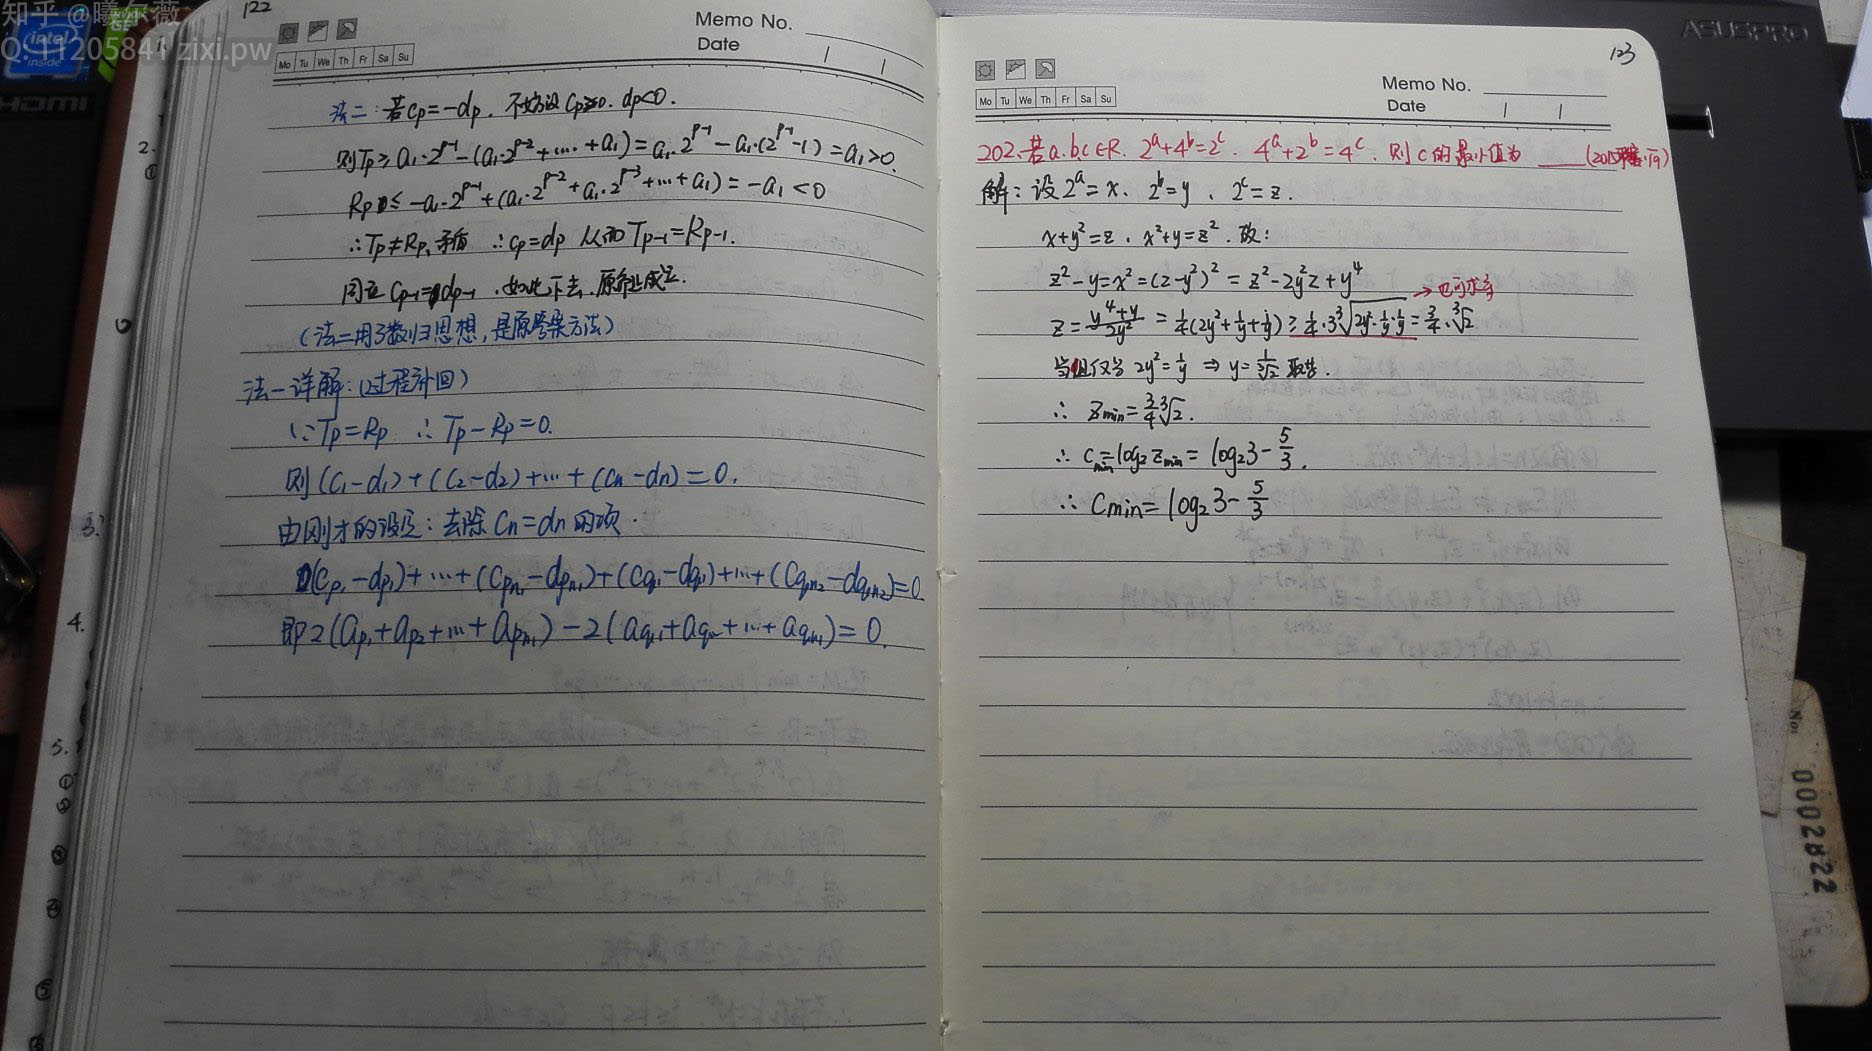 知乎 @曦尔薇
Q: 11205841 zixi.pw
intel inside
HDMI
ASUSPRO
122
Memo No.
Date
Mo Tu We Th Fr Sa Su
法二:若Cp=-dp. 不妨设Cp>0. dp<0.
则Tp≥a₁·2^(p-1)-(a₁·2^(p-2)+…+a₁)=a₁·2^(p-1)-a₁·(2^(p-1)-1)=a₁>0.
Rp≤-a₁·2^(p-1)+(a₁·2^(p-2)+a₁·2^(p-3)+…+a₁)=-a₁<0
∴Tp≠Rp,矛盾 ∴Cp=dp 从而Tp-1=Rp-1.
同理Cp-1=dp-1,如此下去,原命题成立.
(法二用了数归思想,是原答案方法)
法一详解:(过程补回)
∵Tp=Rp ∴Tp-Rp=0.
则(C₁-d₁)+(C₂-d₂)+…+(Cn-dn)=0.
由刚才的设定:去除Cn=dn的项.
(Cp₁-dp₁)+…+(Cpn₁-dpn₁)+(Cq₁-dq₁)+…+(Cqn₂-dqn₂)=0
即2(ap₁+ap₂+…+apn₁)-2(aq₁+aq₂+…+aqn₂)=0.
2.
①
3.
4.
5.
①
②
③
④
⑤
⑥
123
Memo No.
Date
Mo Tu We Th Fr Sa Su
202.若a.b.c∈R. 2^a+4^b=2^c. 4^a+2^b=4^c. 则c的最小值为____(2015 T9)
解:设2^a=x. 2^b=y. 2^c=z.
x+y²=z. x²+y=z². 故:
z²-y=x²=(z-y²)²=z²-2y²z+y⁴
→也可求导
z=(y⁴+y)/(2y²)=1/4(2y²+1/y+1/y)≥1/4·3∛(2y²·1/y·1/y)=3/4·∛2
当且仅当2y²=1/y⇒y=1/∛2取等.
∴ Zmin=3/4∛2.
∴ Cmin=log₂Zmin=log₂3-5/3.
∴ Cmin=log₂3-5/3
No:
0002822